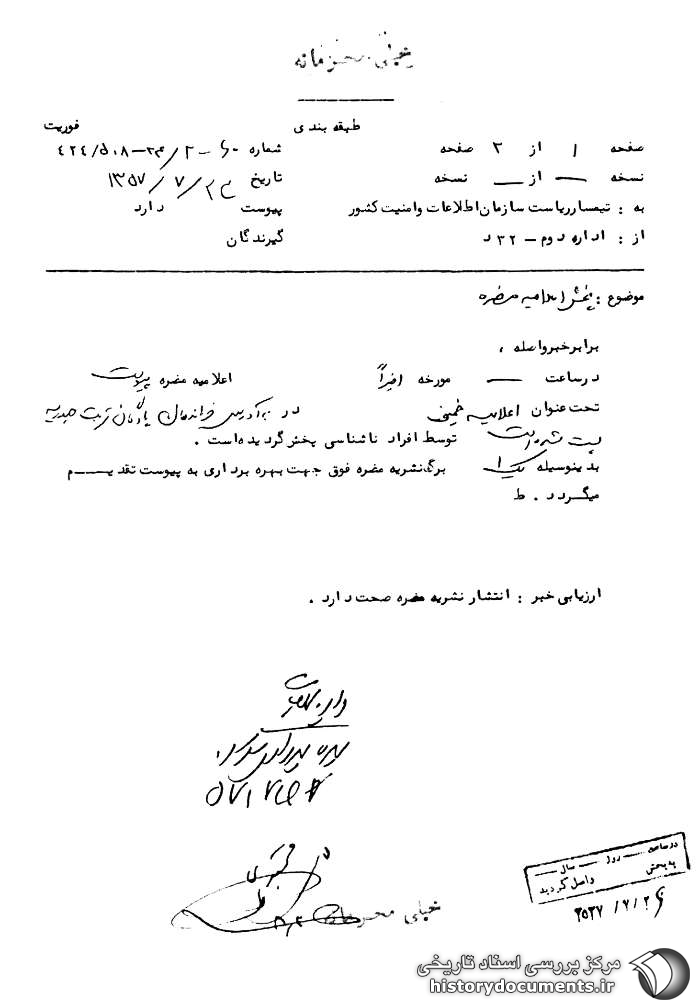 خیلی محرمانه
طبقه بندی فوریت
صفحه ۱ از ۲ صفحه شماره
نسخه — از — نسخه تاریخ ۱۳۵۷/۷/۲۳
به : تیمسار ریاست سازمان اطلاعات وامنیت کشور پیوست دارد
از : اداره دوم – ۳۲ د گیرندگان
موضوع : پخش اعلامیه مضره
برابر خبر واصله ،
در ساعت — مورخه اخیراً اعلامیه مضره پیوست
تحت عنوان اعلامیه خمینی در به آدرس فرماندهان پادگان تربت حیدریه
پست شده است توسط افراد ناشناسی پخش گردیده است .
بدینوسیله یک برگ نشریه مضره فوق جهت بهره برداری به پیوست تقدیــــم
میگردد . ط
ارزیابی خبر : انتشار نشریه مضره صحت دارد .
خیلی محرمانه
در ساعت — روز — سال —
به بخش واصل گردید
۲۵۳۷/۷/۲۶
مرکز بررسی اسناد تاریخی
historydocuments.ir